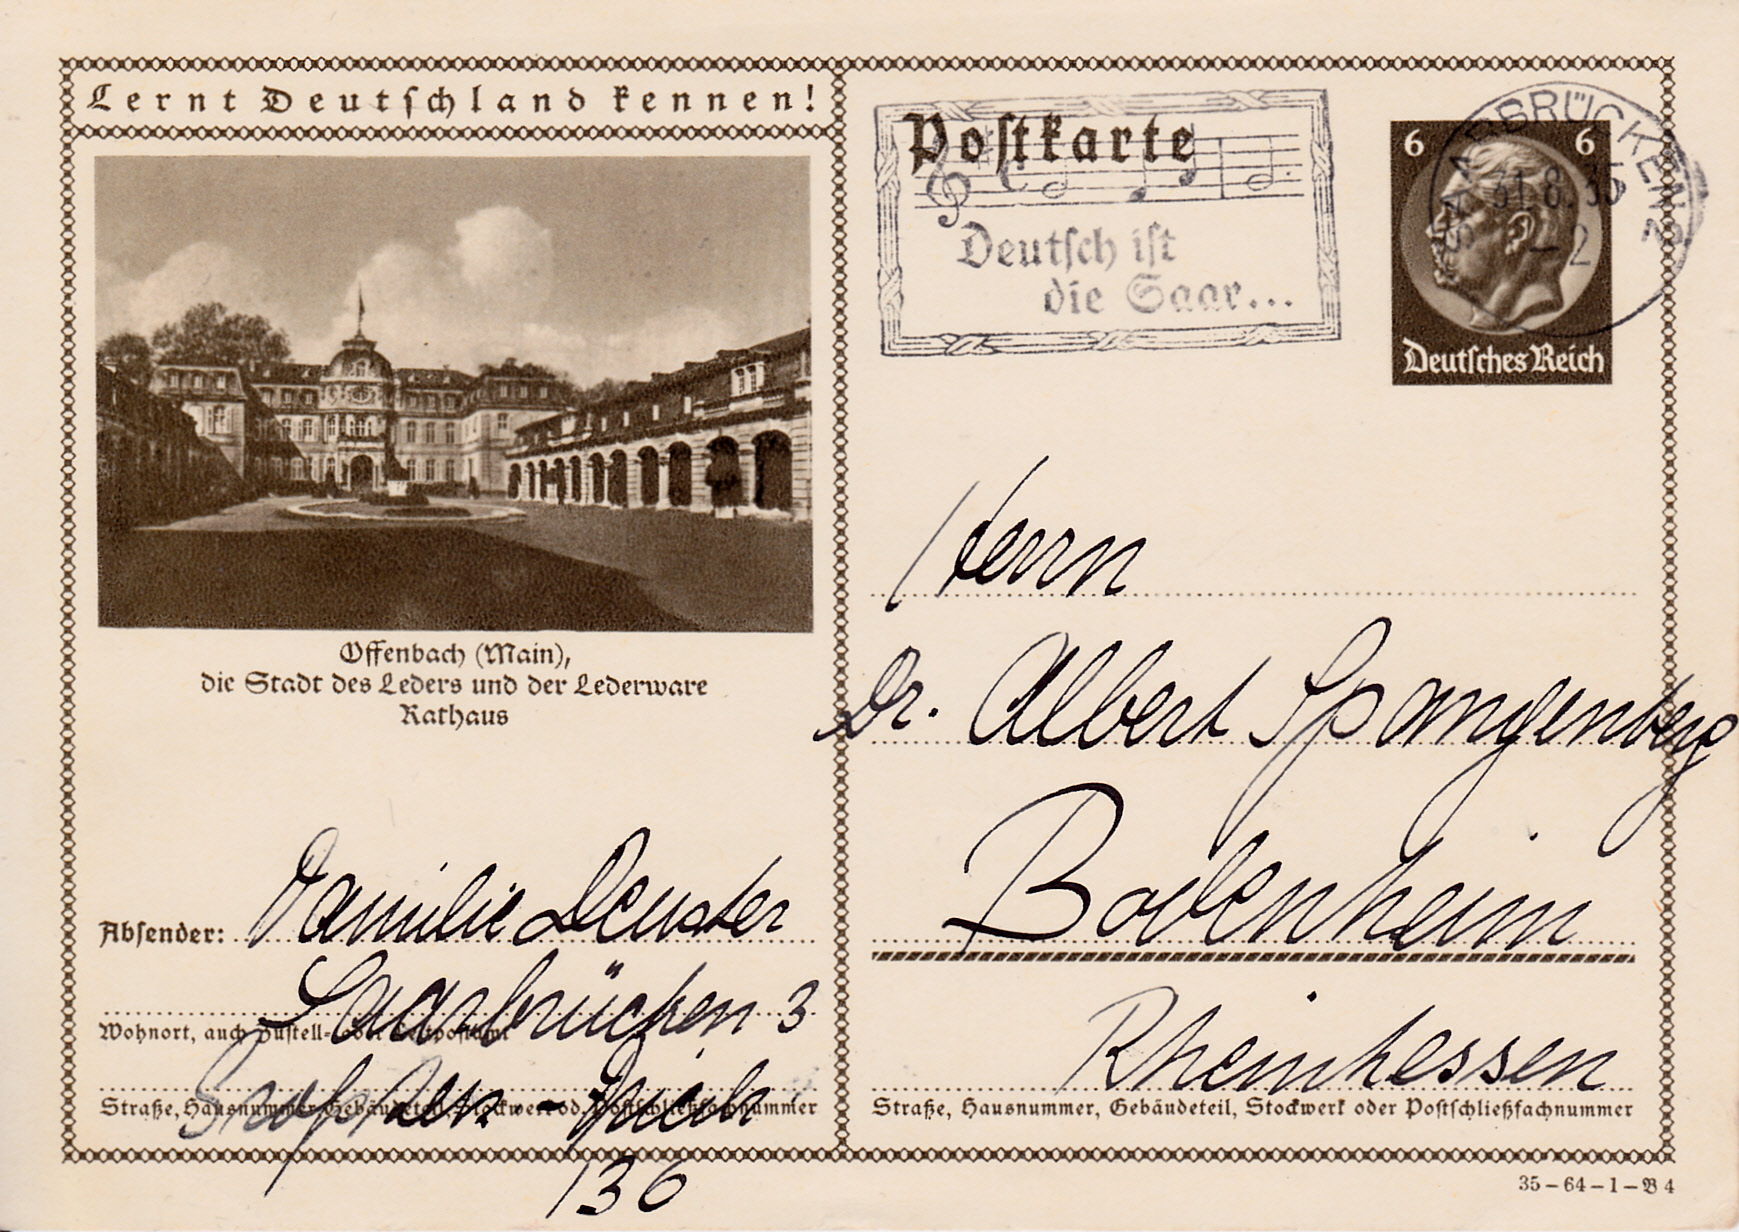 Lernt Deutschland kennen!
Offenbach (Main),
die Stadt des Leders und der Lederware
Rathaus
Absender: Familie Deuster
Saarbrücken 3
Wohnort, auch Zustell- oder Leitpostamt
136
Straße, Hausnummer, Gebäudeteil, Stockwerk od. Postschließfachnummer
Postkarte
Deutsch ist
die Saar...
SAARBRÜCKEN 2
31.8.35
– 2
6 6
Deutsches Reich
Herrn
Dr. Albert Spangenberg
Bodenheim
Rheinhessen
Straße, Hausnummer, Gebäudeteil, Stockwerk oder Postschließfachnummer
35–64–1–B 4